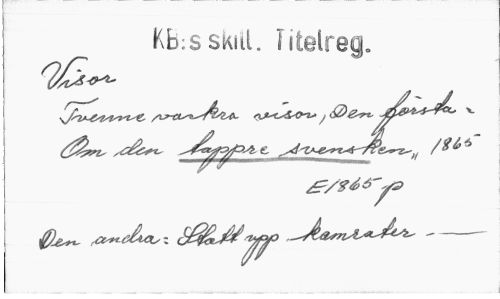 KB:s skill. Titelreg.
Visor
Tvenne vackra visor, Den första:
Om den tappre svensken,, 1865
E1865 p
Den andra: Statt upp kamrater. —